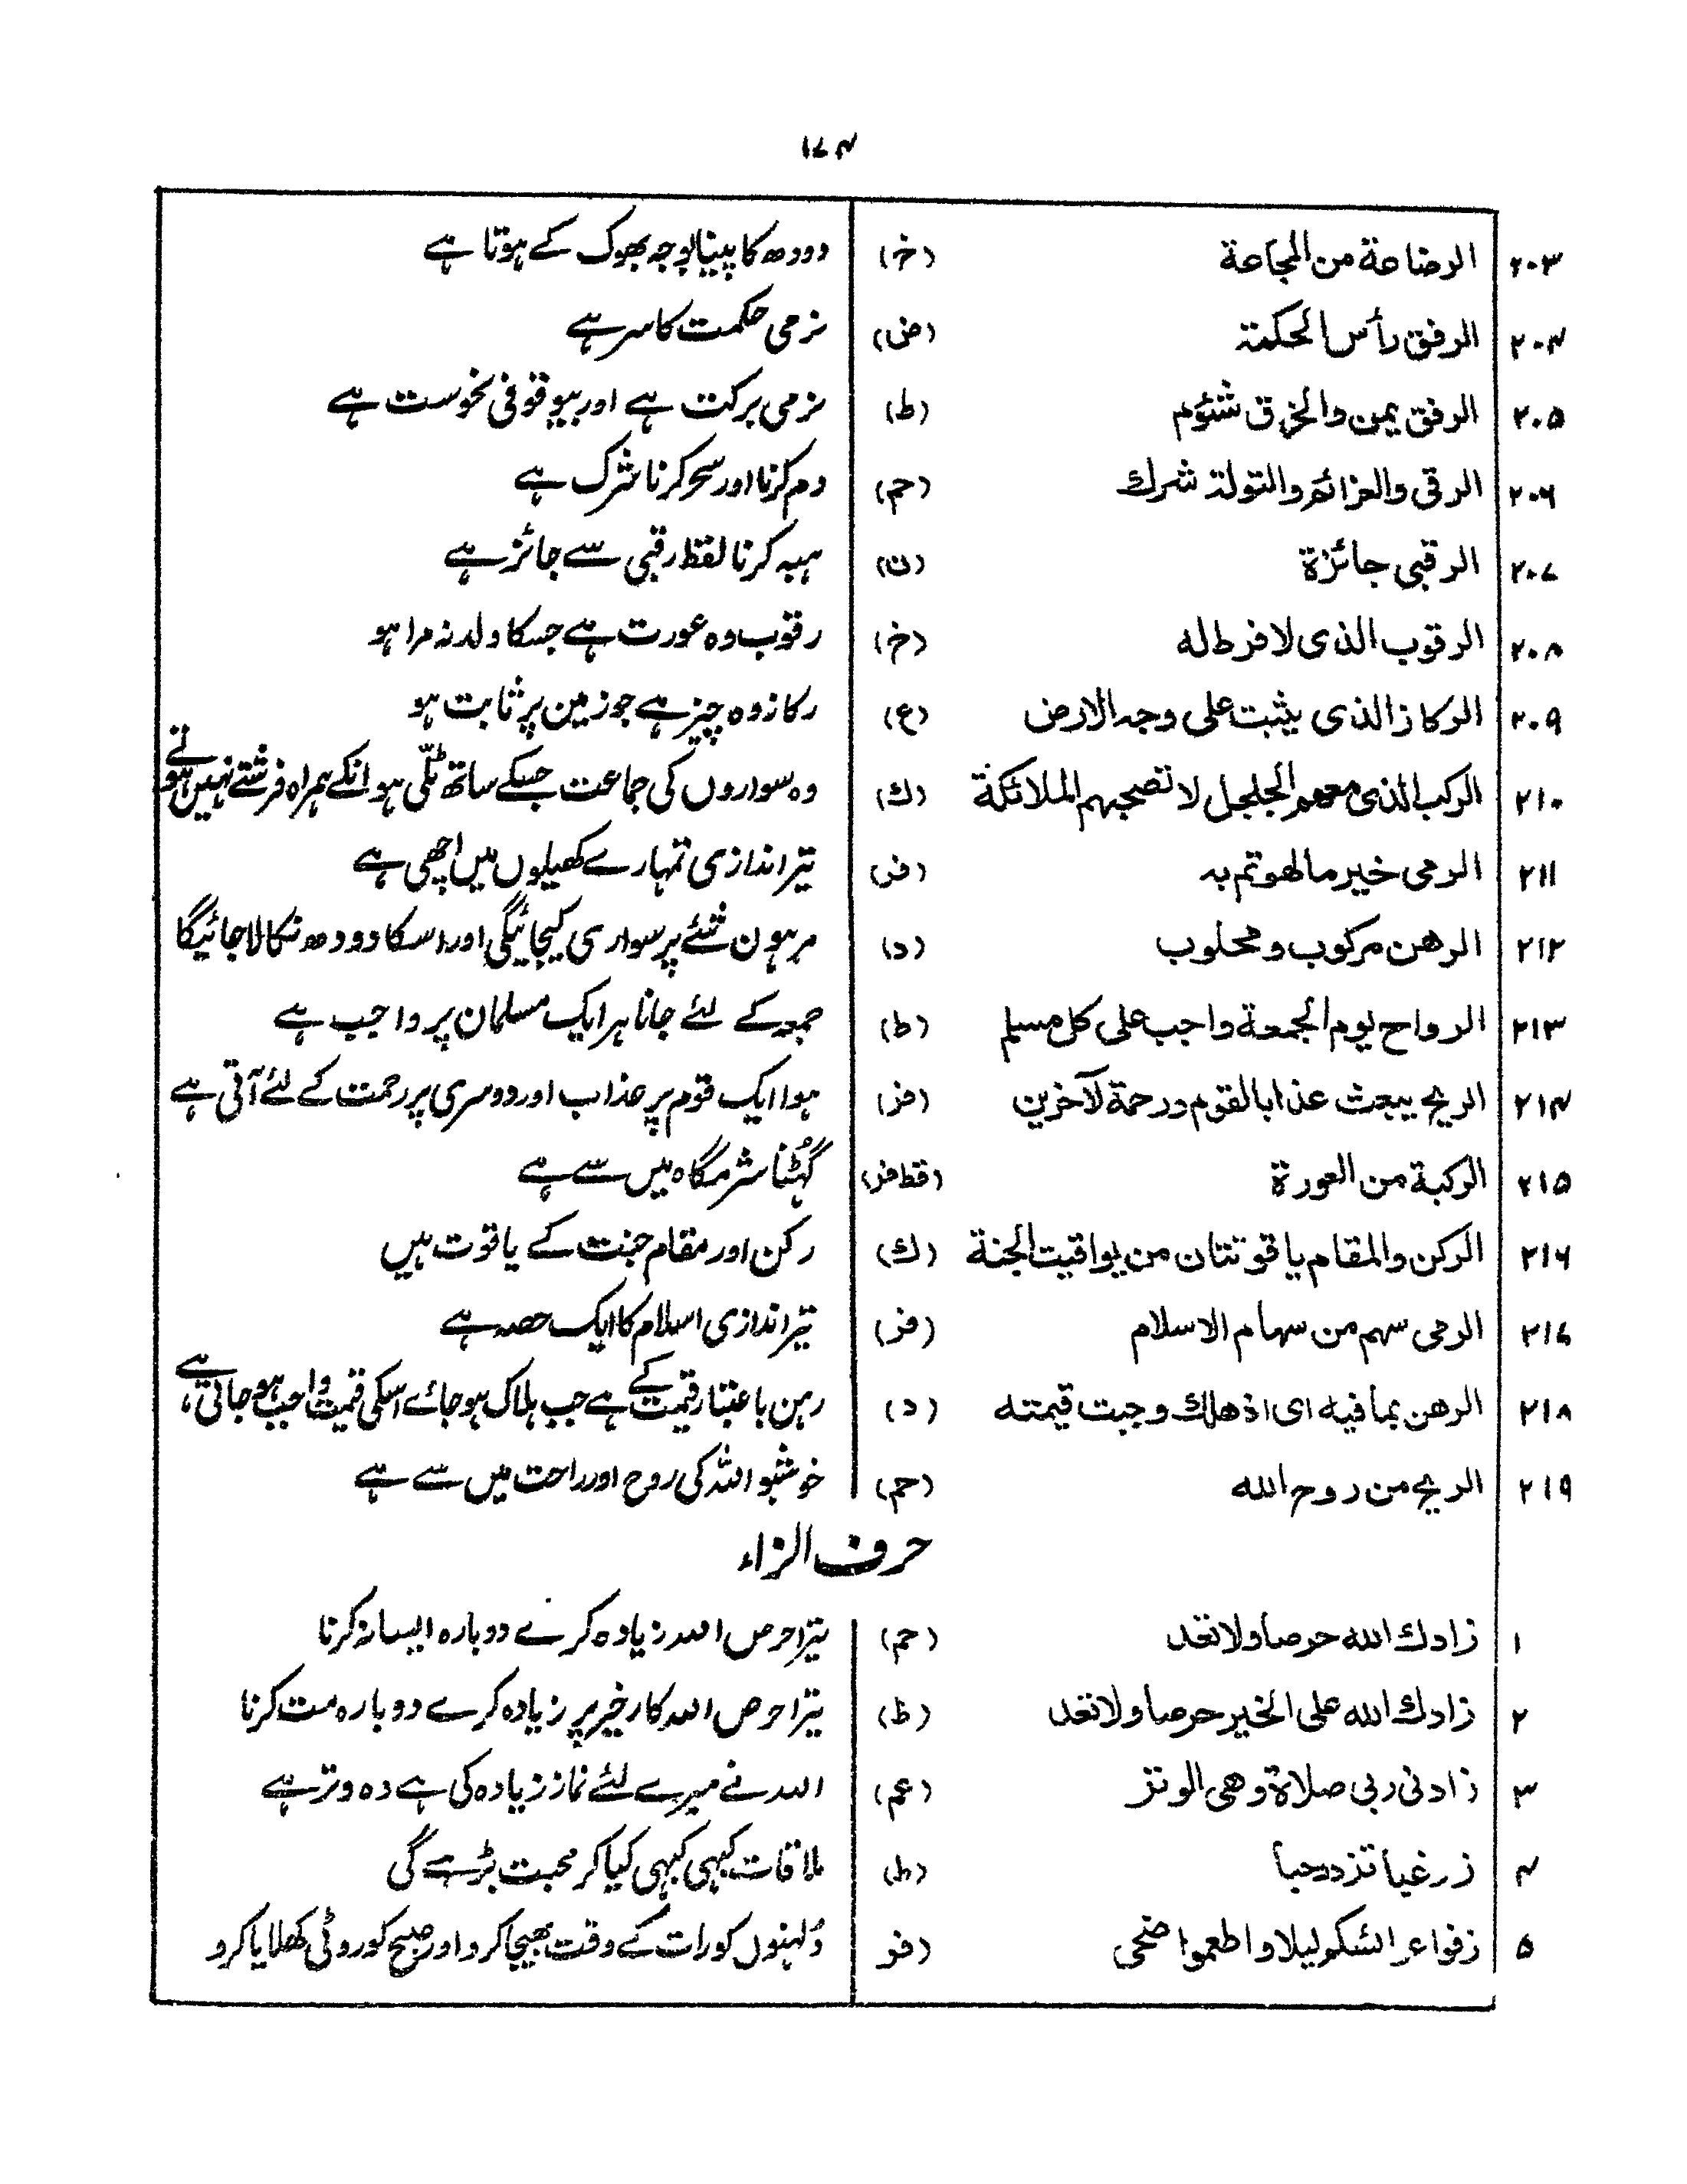 ۱۷۴
۲۰۳ الرضاعة من المجاعة (خ) دودھ کا پینا بوجہ بھوک کے ہوتا ہے
۲۰۴ الرفق رأس الحکمۃ (ض) نرمی حکمت کا سر ہے
۲۰۵ الرفق یمن والخرق شئوم (ط) نرمی برکت ہے اور بیوقوفی نحوست ہے
۲۰۶ الرقی والعزائم والتولۃ شرك (حم) دم کرنا اور سحر کرنا شرک ہے
۲۰۷ الرقبی جائزة (ن) ہبہ کرنا لفظ رقبی سے جائز ہے
۲۰۸ الرقوب الذی لا فرط له (خ) رقوب وہ عورت ہے جسکا ولد نہ مرا ہو
۲۰۹ الرکاز الذی یثبت علی وجه الارض (ع) رکاز وہ چیز ہے جو زمین پر ثابت ہو
۲۱۰ الرکب الذی معهم الجلجل لا تصحبهم الملائکة (ك) وہ سواروں کی جماعت جسکے ساتھ ٹلّی ہو انکے ہمراہ فرشتے نہیں ہوتے
۲۱۱ الرمی خیر ما لهوتم به (فر) تیر اندازی تمہارے کھیلوں میں اچھی ہے
۲۱۲ الرهن مرکوب ومحلوب (د) مرہون شئے پر سواری کیجائیگی اور اسکا دودھ نکالا جائیگا
۲۱۳ الرواح یوم الجمعة واجب علی کل مسلم (ط) جمعہ کے لئے جانا ہر ایک مسلمان پر واجب ہے
۲۱۴ الریح یبعث عذابا لقوم ورحمة لآخرین (فر) ہوا ایک قوم پر عذاب اور دوسری پر رحمت کے لئے آتی ہے
۲۱۵ الرکبة من العورة (قط فر) گہٹنا شرمگاہ میں سے ہے
۲۱۶ الرکن والمقام یاقوتتان من یواقیت الجنة (ك) رکن اور مقام جنت کے یاقوت ہیں
۲۱۷ الرمی سهم من سهام الاسلام (فر) تیر اندازی اسلام کا ایک حصہ ہے
۲۱۸ الرهن بما فیه ای اذ هلك وجبت قیمته (د) رہن باعتبار قیمت کے ہے جب ہلاک ہو جائے اسکی قیمت واجب ہو جاتی ہے
۲۱۹ الریح من روح الله (حم) خوشبو اللہ کی روح اور راحت میں سے ہے
حرف الزاء
۱ زادك الله حرصا ولا تعد (حم) تیرا حرص اللہ زیادہ کرے دوبارہ ایسا نہ کرنا
۲ زادك الله علی الخیر حرصا ولا تعد (ط) تیرا حرص اللہ کار خیر پر زیادہ کرے دوبارہ مت کرنا
۳ زادنی ربی صلاة وهی الوتر (عم) اللہ نے میرے لئے نماز زیادہ کی ہے وہ وتر ہے
۴ زر غبا تزدد حبا (ط) ملاقات کبہی کبہی کیا کر محبت بڑہے گی
۵ زفوا عرائسکم لیلا واطعموا ضحی (فر دُلہنوں کو رات کے وقت بھیجا کرو اور صبح کو روٹی کھلایا کرو